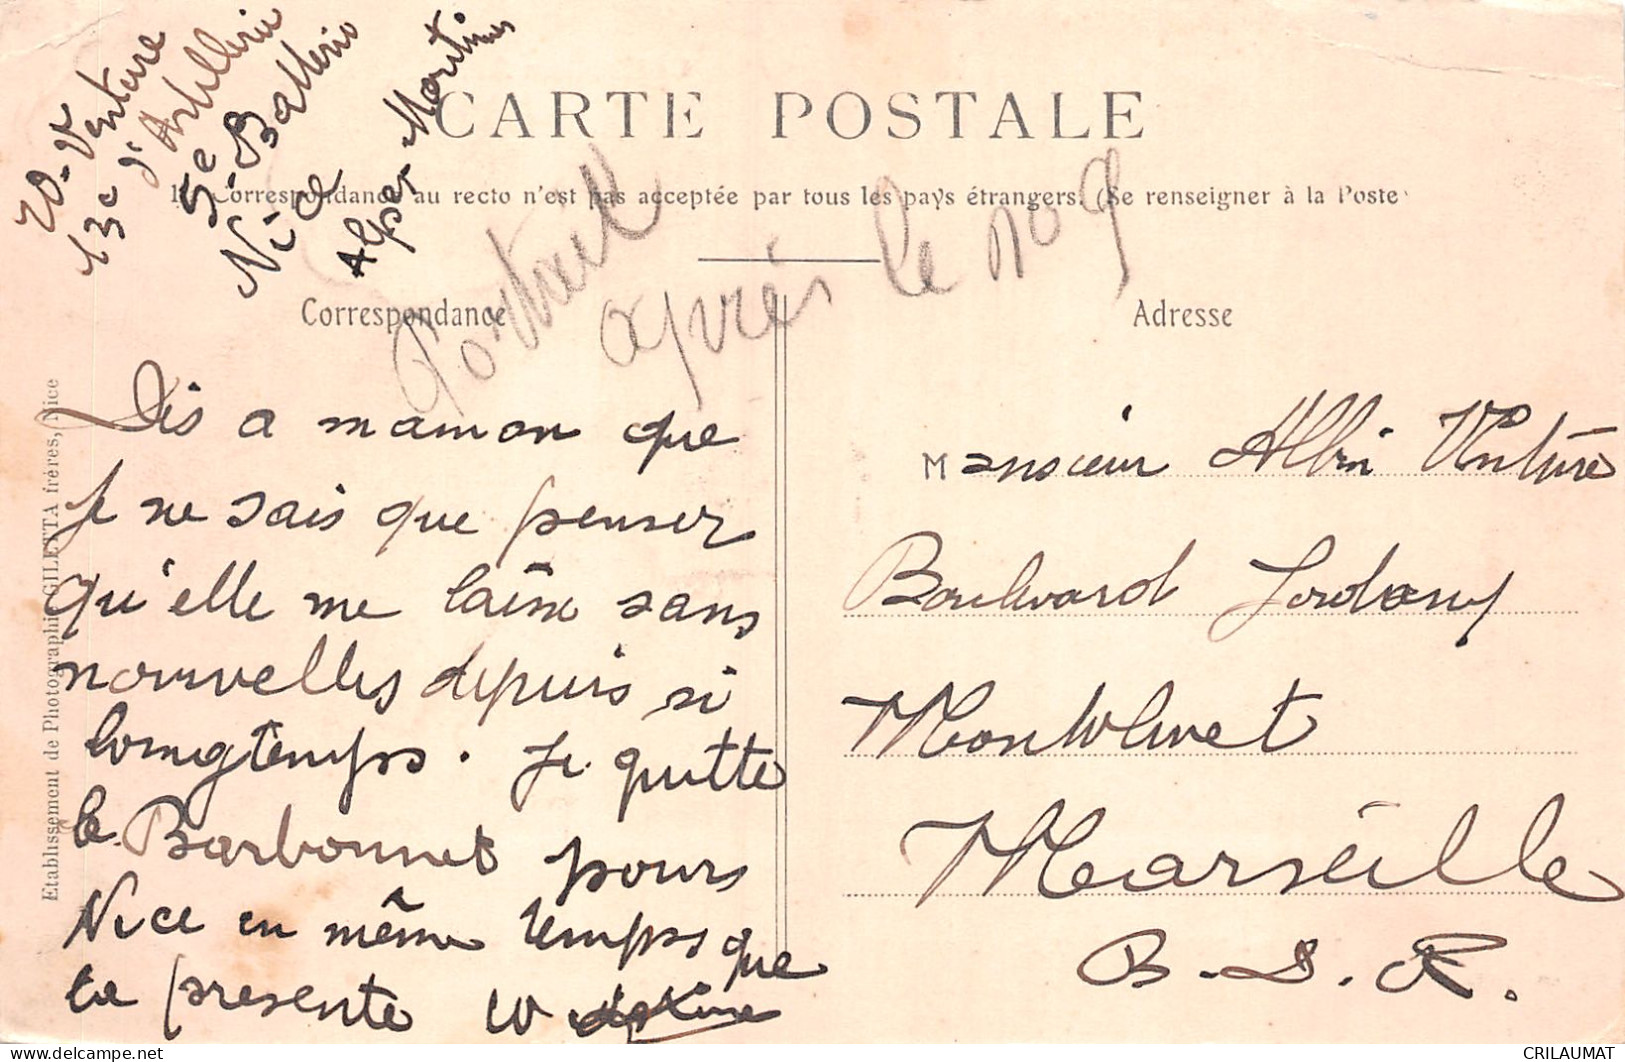 W-Venture
13e d'Artillerie
5e Batterie
Nice
Alpes-Maritimes
CARTE POSTALE
Correspondance au recto n'est pas acceptée par tous les pays étrangers. (Se renseigner à la Poste
Portrait
après le no 9
Correspondance
Dis a maman que
je ne sais que penser
qu'elle me laisse sans
nouvelles depuis si
longtemps. Je quitte
le Barbonnet pour
Nice en même temps que
la presente W
Adresse
Monsieur Albin Venture
Boulevard Jordany
Montolivet
Marseille
B.d.R.
Etablissement de Photographie GILETTA frères, Nice
CRILAUMAT